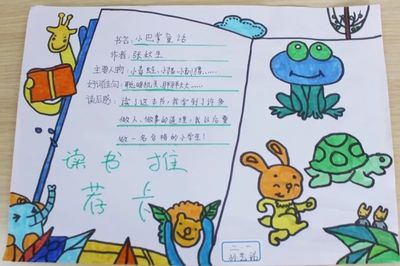 书名：小巴掌童话
作者：张秋生
主要人物：小青蛙、小猫、小刺猬……
好词佳句：聪明机灵、胖胖大大……
读后感：读了这本书，我学到了许多
做人、做事的道理，我以后要
做一名合格的小学生！
读书推
荐卡
二、一